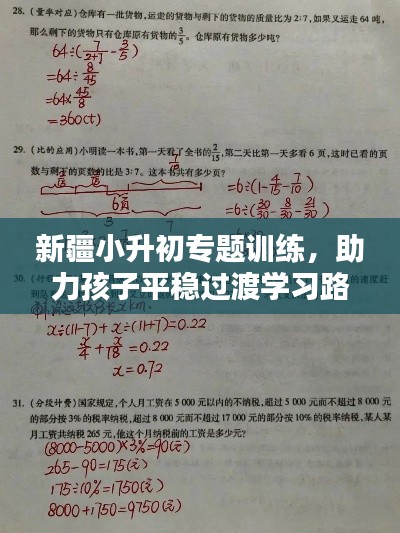 28.（量率对应）仓库有一批货物，运走的货物与剩下的货物的质量比为2:7，如果又运走64吨，
那么剩下的货物只有仓库原有货物的3/5。仓库原有货物多少吨？
64÷(7/2+7-3/5)
=64÷8/45
=64×45/8
=360(t)
29.（比的应用）小明读一本书，第一天看了全书的2/15，第二天比第一天多看6页，这时已看的页
数与剩下的页数的比是3:7。这本书共有多少页？
=6÷(1-4/15-7/10)
=6÷(30/30-8/30-21/30)
新疆小升初专题训练，助
力孩子平稳过渡学习路
x÷(11-7)+x÷(11+7)=0.22
x/4+x/18=0.22
x=0.72
31.（分段计费）国家规定，个人月工资在5000元以内的不纳税，超过5000元而不超过8000元
的部分按3%的税率纳税，超过8000元而不超过17000元的部分按10%的税率纳税，某人某
月工资共纳税265元，他这个月纳税前的工资是多少元？
(8000-5000)×3%=90(元)
265-90=175(元)
175÷10%=1750(元)
8000+1750=9750(元)